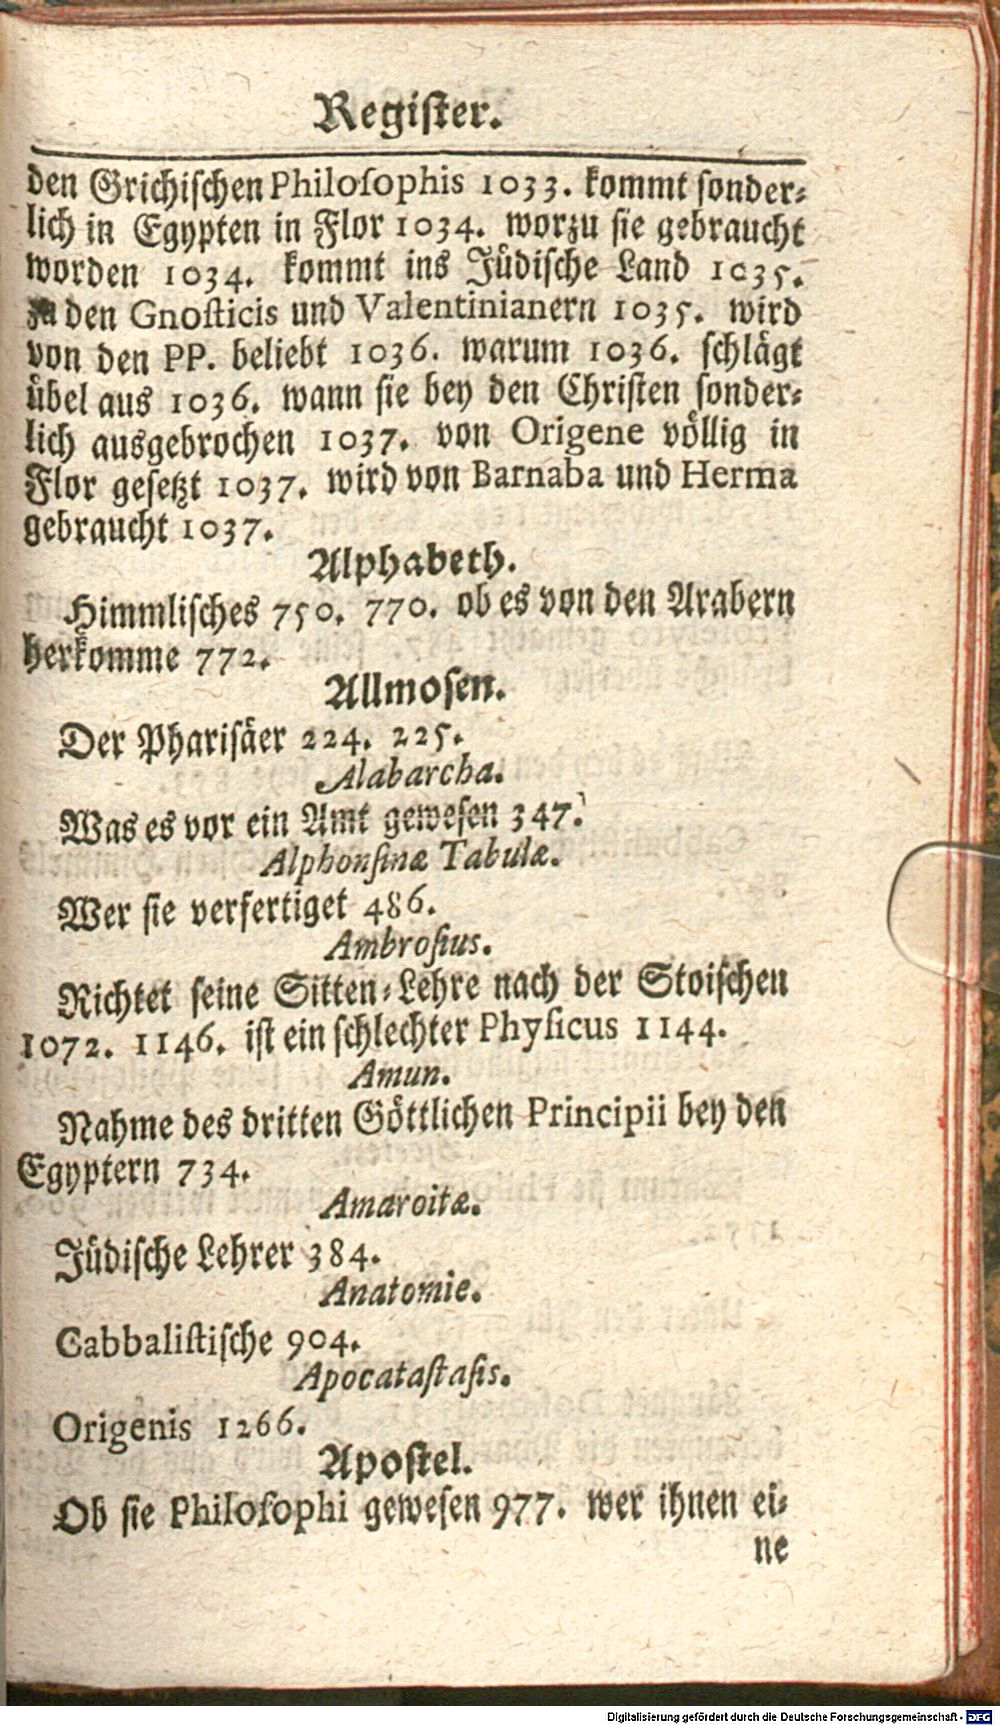 Register.
den Grichischen Philosophis 1033. kommt sonder-
lich in Egypten in Flor 1034. worzu sie gebraucht
worden 1034. kommt ins Jüdische Land 1035.
zu den Gnosticis und Valentinianern 1035. wird
von den PP. beliebt 1036. warum 1036. schlägt
übel aus 1036. wann sie bey den Christen sonder-
lich ausgebrochen 1037. von Origene völlig in
Flor gesetzt 1037. wird von Barnaba und Herma
gebraucht 1037.
Alphabeth.
Himmlisches 750. 770. ob es von den Arabern
herkomme 772.
Allmosen.
Der Pharisäer 224. 225.
Alabarcha.
Was es vor ein Amt gewesen 347.
Alphonsinæ Tabulæ.
Wer sie verfertiget 486.
Ambrosius.
Richtet seine Sitten-Lehre nach der Stoischen
1072. 1146. ist ein schlechter Physicus 1144.
Amun.
Nahme des dritten Göttlichen Principii bey den
Egyptern 734.
Amaroitæ.
Jüdische Lehrer 384.
Anatomie.
Cabbalistische 904.
Apocatastasis.
Origenis 1266.
Apostel.
Ob sie Philosophi gewesen 977. wer ihnen ei-
ne
Digitalisierung gefördert durch die Deutsche Forschungsgemeinschaft - DFG